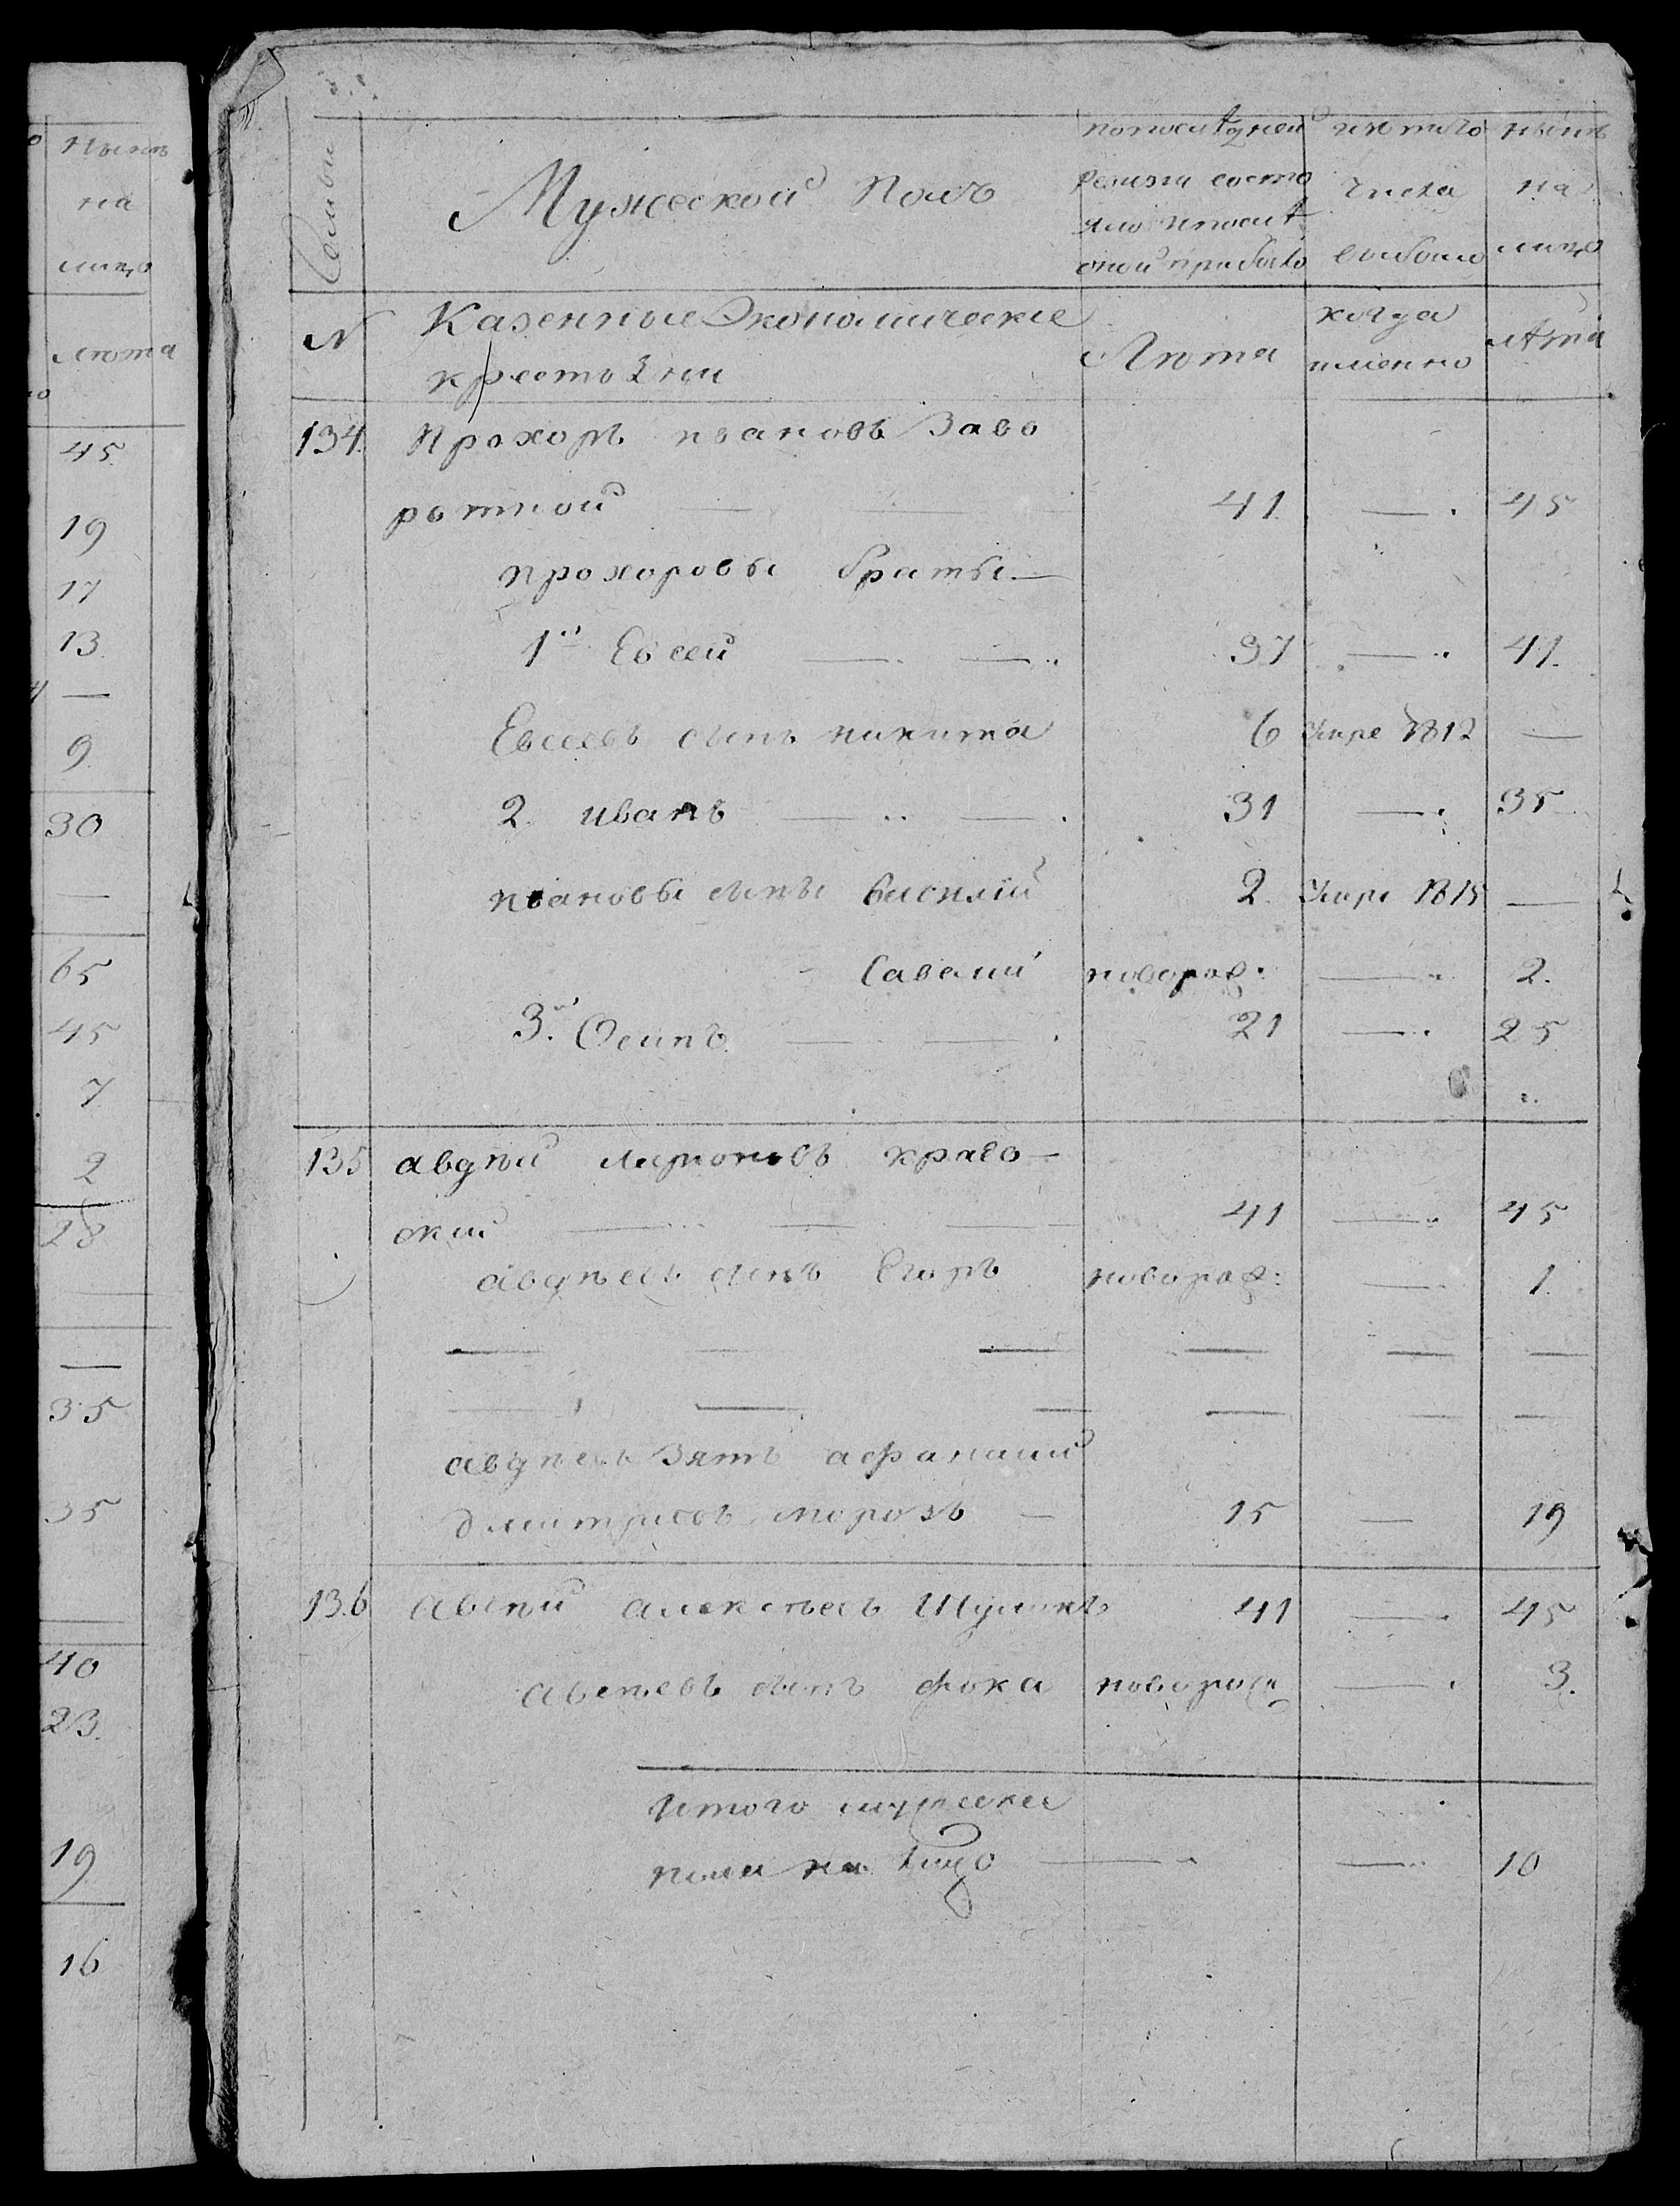 нынѣ
на
лицо
лѣта
45
19
17
13
—
9
30
—
65
45
7
2
28
—
35
35
40
23
19
16
Семьи
Мужеской полъ
попослѣдней
ревизіи состо
яло ипослѣ
оной прибыло
изъ того
числа
выбыло
нынѣ
на
лицо
№
Казенные Экономические
крестьяни
Лѣта
когда
именно
лѣта
134. Прохоръ ивановъ Заво
ротной — — 41 — 45
прохоровы братьи —
1й Евсей — — 37 — 41.
Евсеевъ сынъ никита 6 умре 1812 —
2 иванъ — — 31 — 35
ивановы сыны василій 2 умре 1815 —
Савелий новорож: — 2.
3й Осипъ — — 21 — 25
135 авдѣй ларионовъ краво-
ский — — — 41 — 45
авдѣевъ сынъ Егоръ новорож: — 1
— — — — — —
— — — — — —
авдѣевъ зять афанасий
дмитриевъ морозъ — 15 — 19
136 Авсѣй алексѣевъ 41 — 45
Авсѣевъ сынъ фока новорож — 3.
Итого мужеска
пола на лицо — — 10